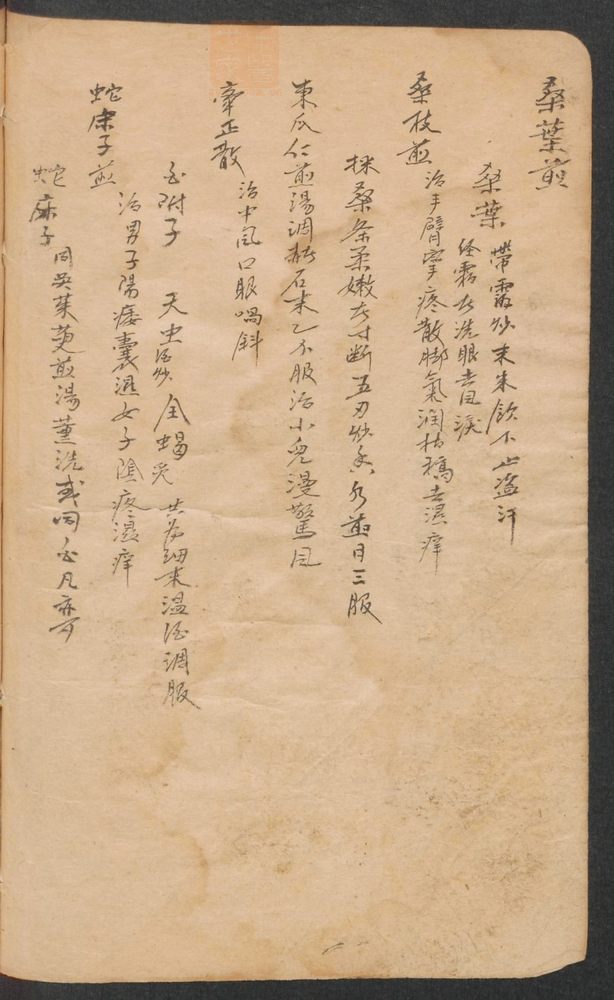 桑葉煎
桑葉 帶露炒末米飲下止盜汗
經霜者洗眼去風淚
桑枝煎 治手臂牽疼散脚氣潤枯槁去濕痒
採桑条柔嫩者寸断五刃炒香水煎日三服
東瓜仁煎湯調赭石末乙不服治小兒漫驚風
牽正散 治中風口眼喎斜
白附子 天虫酒炒 全蝎炙 共为細末温酒調服
蛇床子煎 治男子陽痿囊濕女子陰疼濕痒
蛇床子 同吳茱萸煎湯薰洗或同白凡亦可